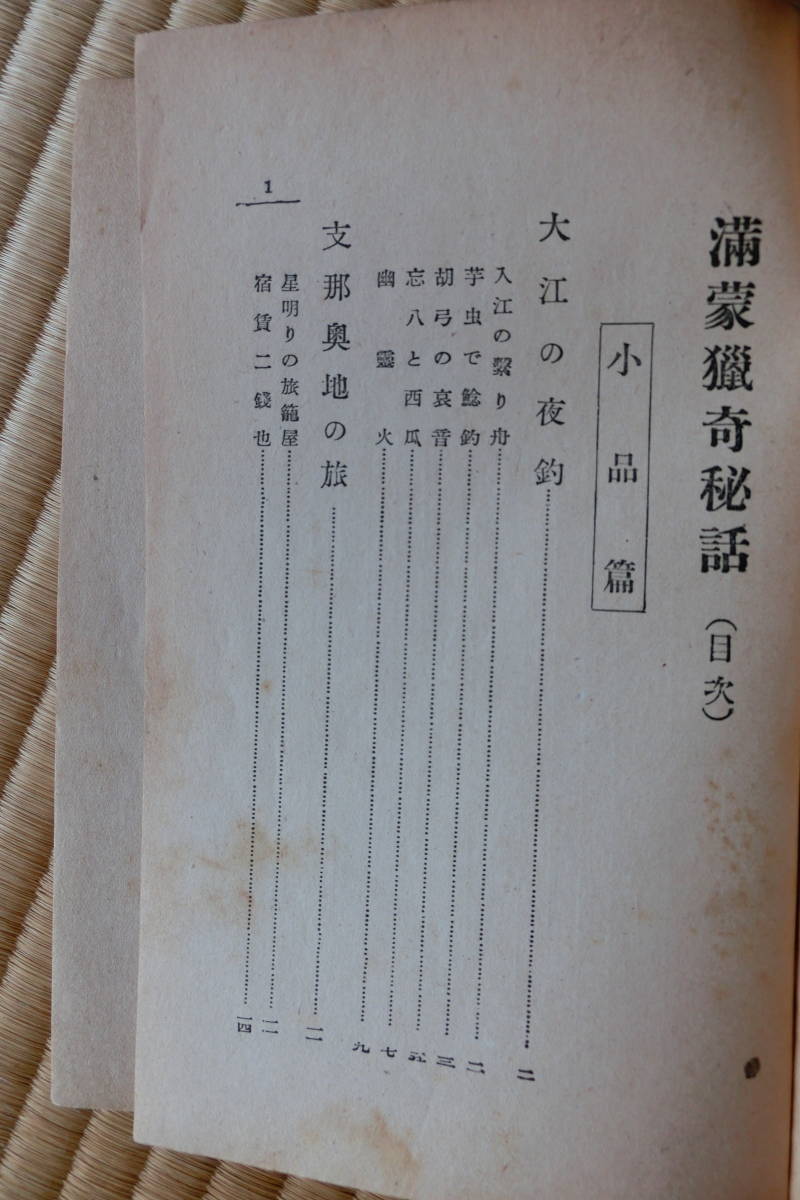 滿蒙獵奇秘話（目次）
小品篇
大江の夜釣……二
入江の繫り舟……二
芋虫で鯰釣……三
胡弓の哀音……五
忘八と西瓜……七
幽靈火……九
支那奧地の旅……一一
星明りの旅籠屋……一一
宿賃二錢也……一四
1